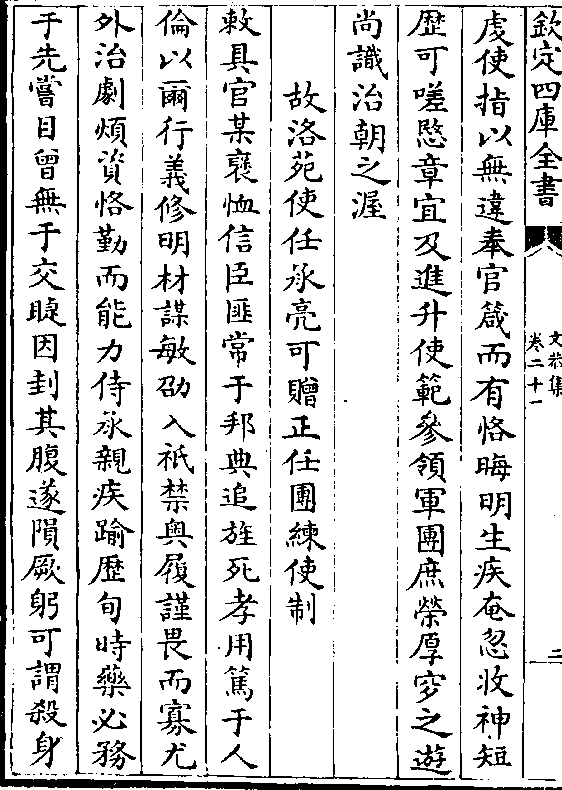 欽定四庫全書
文恭集
卷二十一
二
虔使指以無違奉官箴而有恪晦明生疾奄忽收神短
歴可嗟愍章宜及進升使範參領軍團庶榮厚穸之遊
尚識治朝之渥
故洛苑使任承亮可贈正任團練使制
敕具官某褒恤信臣匪常于邦典追旌死孝用篤于人
倫以爾行義修明材謀敏劭入祇禁輿履謹畏而寡尤
外治劇煩資恪勤而能力侍承親疾踰歴旬時藥必務
于先嘗目曾無于交睫因刲其腹遂隕厥躬可謂殺身